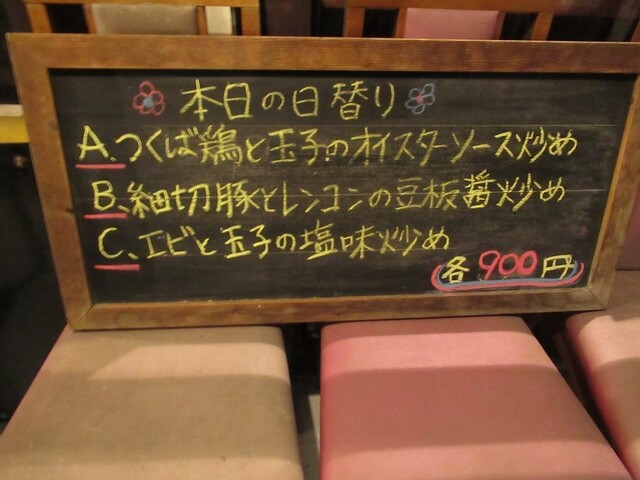 本日の日替り
A、つくば鶏と玉子のオイスターソース炒め
B、細切豚とレンコンの豆板醤炒め
C、エビと玉子の塩味炒め
各900円